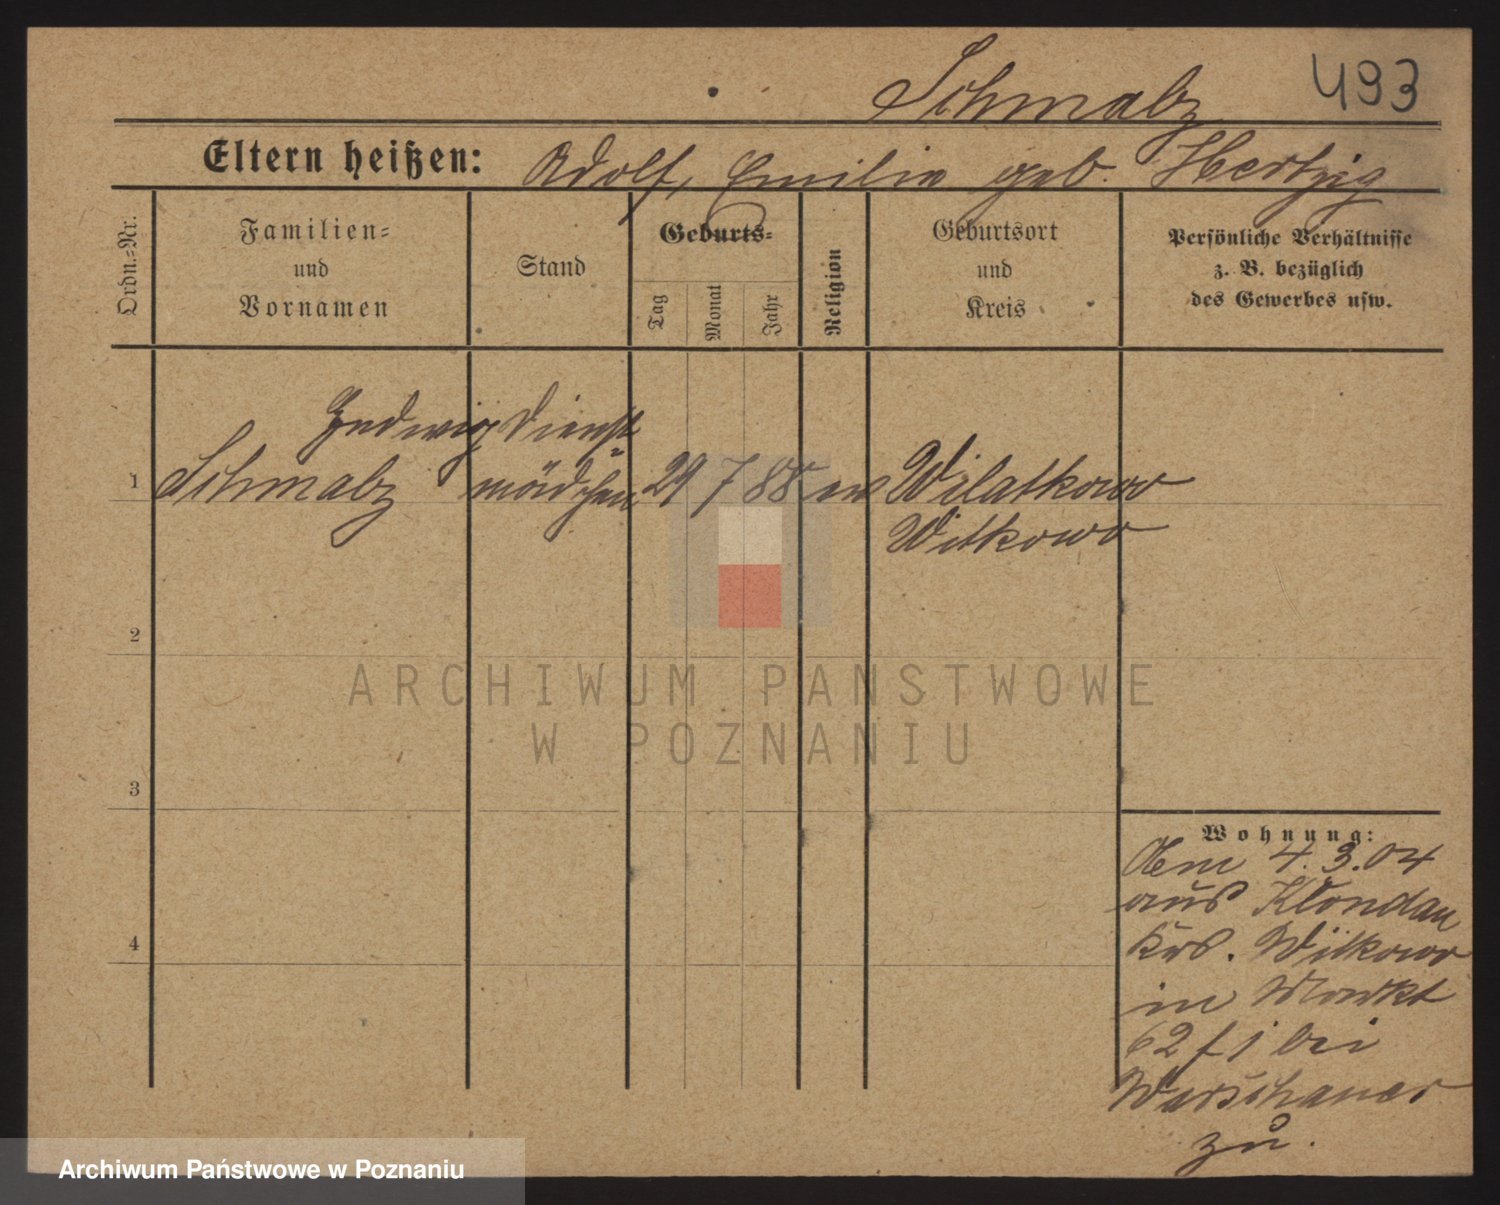 493
Schmalz
Eltern heißen: Adolf, Emilie geb. Hertzig
Ordn.-Nr.
Familien- und Vornamen
Stand
Geburts-
Tag
Monat
Jahr
Religion
Geburtsort und Kreis
Persönliche Verhältnisse z. B. bezüglich des Gewerbes usw.
Hedwig Dienst
1 Schmalz mädchen 29 7 88 ev Wilatkowo
Witkowo
2
3
4
ARCHIWUM PAŃSTWOWE
W POZNANIU
Wohnung:
Am 4.3.04
aus
Krs. Witkowo
in Markt
62 f 1 bei
Warschauer
zu.
Archiwum Państwowe w Poznaniu